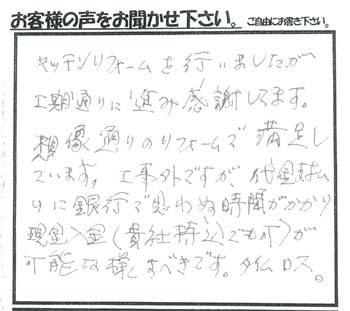 お客様の声をお聞かせ下さい。ご自由にお書き下さい。
キッチンリフォームを行いましたが
工期通りに進み感謝してます。
想像通りのリフォームで満足し
ています。工事外ですが、代金支払
りに銀行で思わぬ時間がかかり
現金入金(貴社持込でも可)が
可能な様にすべきです。タイムロス。